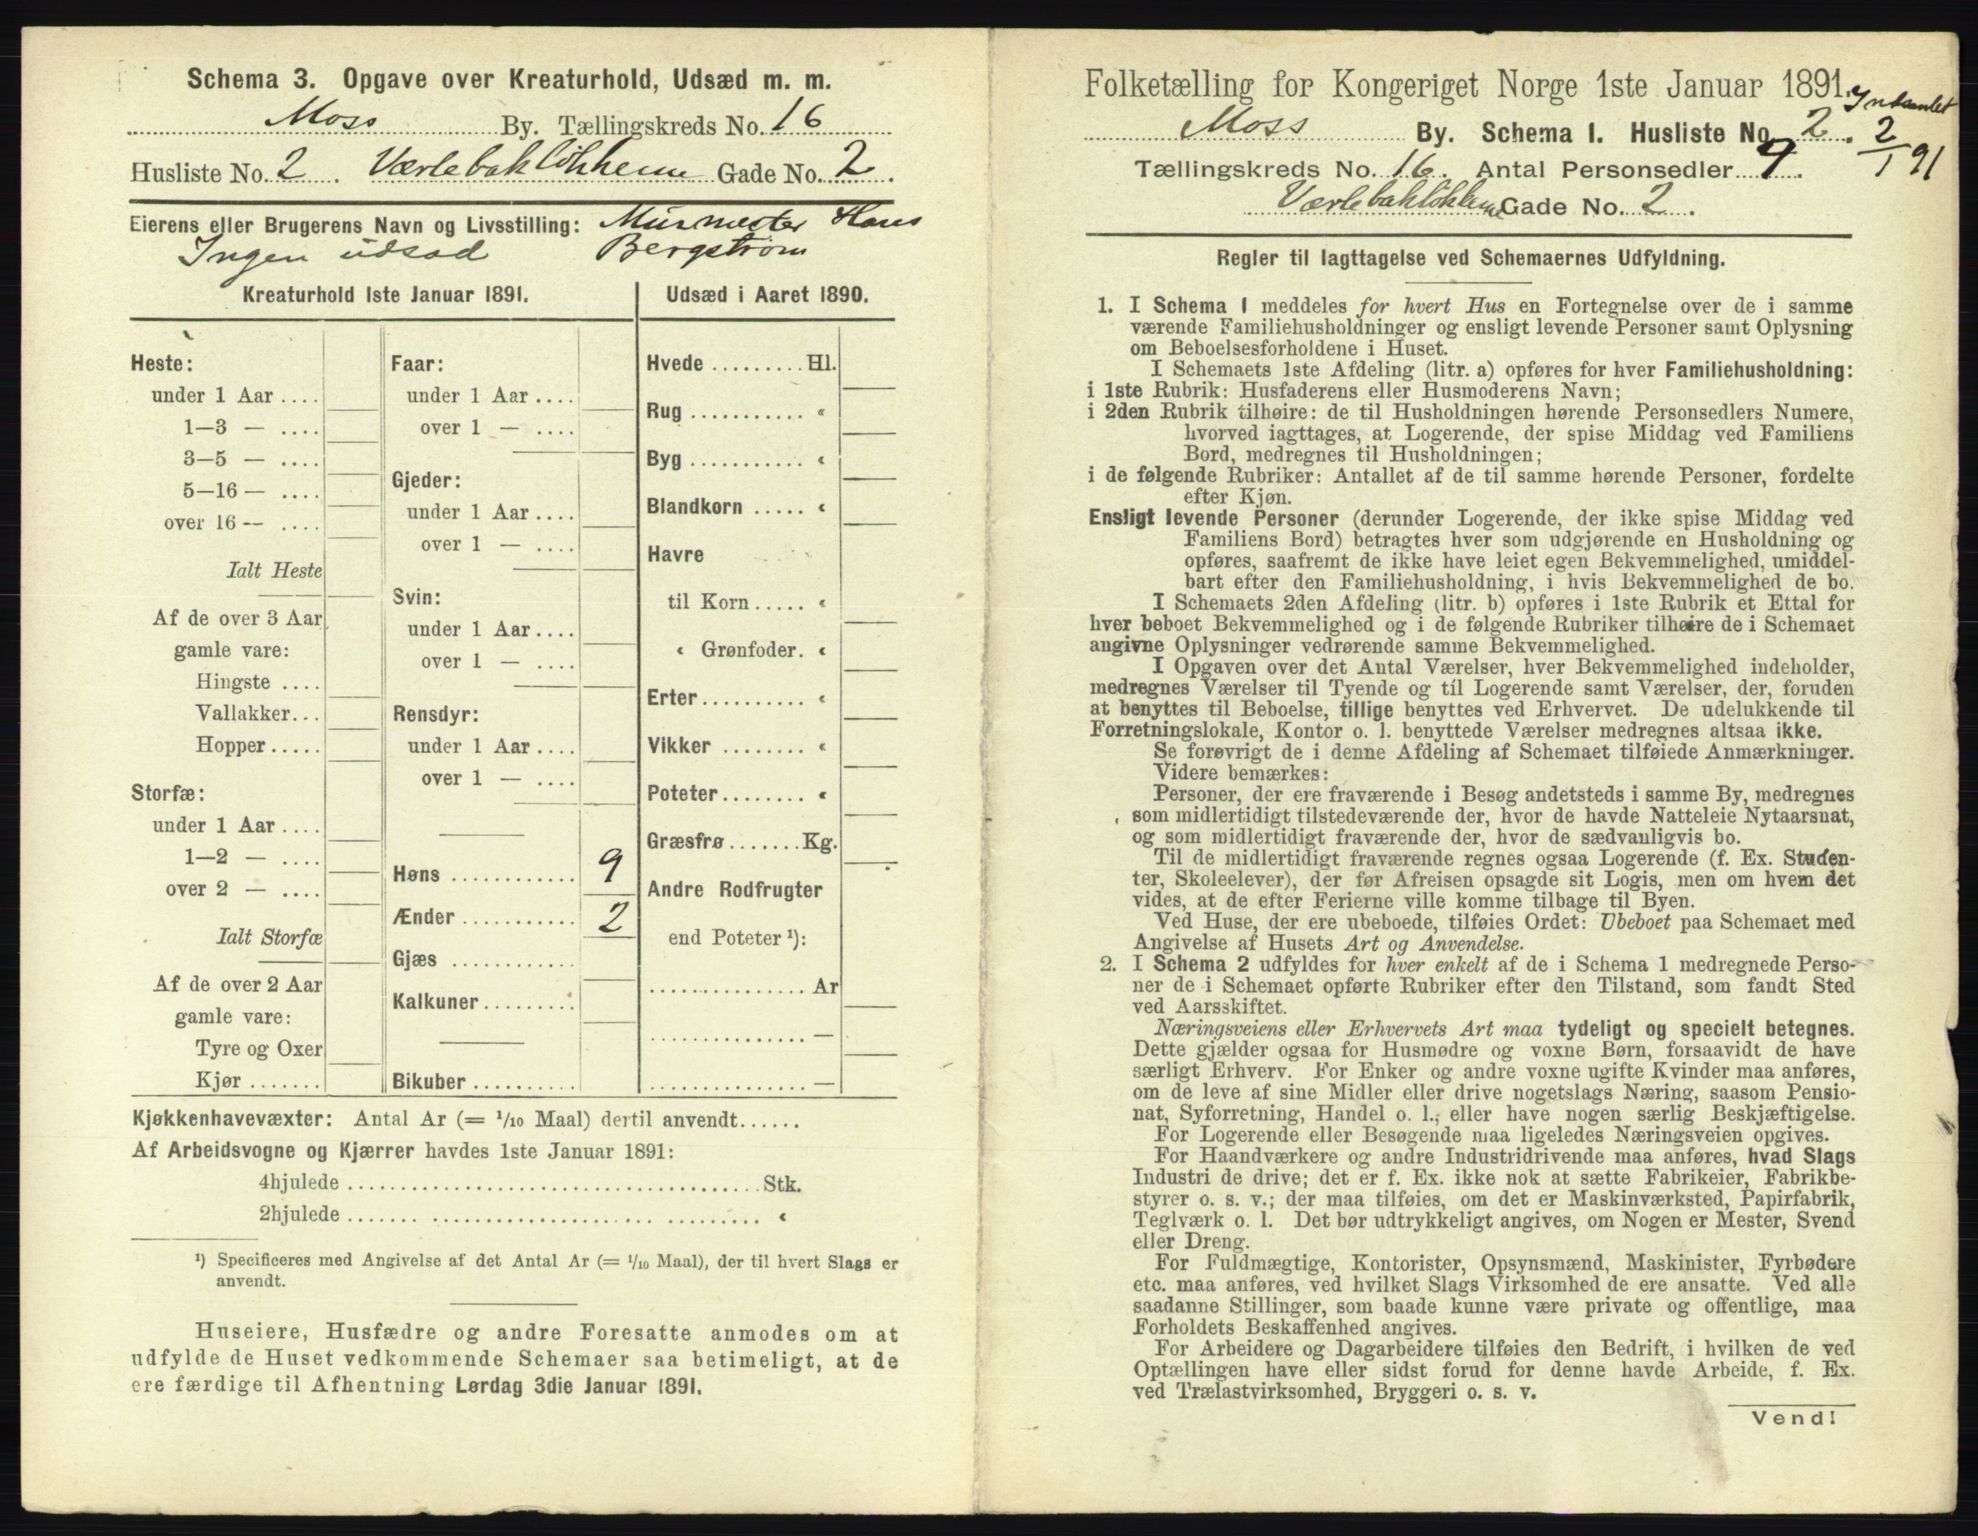 Schema 3. Opgave over Kreaturhold, Udsæd m. m.
Moss By. Tællingskreds No. 16
Husliste No. 2. Værlebakløkkerne Gade No. 2.
Eierens eller Brugerens Navn og Livsstilling: Murmester Hans
Ingen udsæd Bergstrøm
Kreaturhold 1ste Januar 1891.
Heste:
under 1 Aar ....
1—3 — ....
3—5 — ....
5—16 — ....
over 16 — ....
Ialt Heste
Af de over 3 Aar
gamle vare:
Hingste ....
Vallakker...
Hopper.....
Storfæ:
under 1 Aar ....
1—2 — ....
over 2 — ....
Ialt Storfæ
Af de over 2 Aar
gamle vare:
Tyre og Oxer
Kjør .......
Faar:
under 1 Aar ....
over 1 — ....
Gjeder:
under 1 Aar ....
over 1 — ....
Svin:
under 1 Aar ....
over 1 — ....
Rensdyr:
under 1 Aar ....
over 1 — ....
Høns ............ 9
Ænder ........... 2
Gjæs ............
Kalkuner.........
Bikuber ..........
Udsæd i Aaret 1890.
Hvede ......... Hl.
Rug ........... «
Byg ........... «
Blandkorn ..... «
Havre
til Korn ..... «
« Grønfoder. «
Erter .......... «
Vikker ......... «
Poteter........ «
Græsfrø ....... Kg.
Andre Rodfrugter
end Poteter ¹):
............... Ar
............... —
............... —
Kjøkkenhavevæxter: Antal Ar (= 1/10 Maal) dertil anvendt......
Af Arbeidsvogne og Kjærrer havdes 1ste Januar 1891:
4hjulede ........................................ Stk.
2hjulede ........................................ «
¹) Specificeres med Angivelse af det Antal Ar (= 1/10 Maal), der til hvert Slags er
anvendt.
Huseiere, Husfædre og andre Foresatte anmodes om at
udfylde de Huset vedkommende Schemaer saa betimeligt, at de
ere færdige til Afhentning Lørdag 3die Januar 1891.
Folketælling for Kongeriget Norge 1ste Januar 1891.
Indsamlet
2/1 91
Moss By. Schema 1. Husliste No. 2.
Tællingskreds No. 16. Antal Personsedler 9.
Værlebakløkkerne Gade No. 2.
Regler til Iagttagelse ved Schemaernes Udfyldning.
1. I Schema 1 meddeles for hvert Hus en Fortegnelse over de i samme
værende Familiehusholdninger og ensligt levende Personer samt Oplysning
om Beboelsesforholdene i Huset.
I Schemaets 1ste Afdeling (litr. a) opføres for hver Familiehusholdning:
i 1ste Rubrik: Husfaderens eller Husmoderens Navn;
i 2den Rubrik tilhøire: de til Husholdningen hørende Personsedlers Numere,
hvorved iagttages, at Logerende, der spise Middag ved Familiens
Bord, medregnes til Husholdningen;
i de følgende Rubriker: Antallet af de til samme hørende Personer, fordelte
efter Kjøn.
Ensligt levende Personer (derunder Logerende, der ikke spise Middag ved
Familiens Bord) betragtes hver som udgjørende en Husholdning og
opføres, saafremt de ikke have leiet egen Bekvemmelighed, umiddel-
bart efter den Familiehusholdning, i hvis Bekvemmelighed de bo.
I Schemaets 2den Afdeling (litr. b) opføres i 1ste Rubrik et Ettal for
hver beboet Bekvemmelighed og i de følgende Rubriker tilhøire de i Schemaet
angivne Oplysninger vedrørende samme Bekvemmelighed.
I Opgaven over det Antal Værelser, hver Bekvemmelighed indeholder,
medregnes Værelser til Tyende og til Logerende samt Værelser, der, foruden
at benyttes til Beboelse, tillige benyttes ved Erhvervet. De udelukkende til
Forretningslokale, Kontor o. l. benyttede Værelser medregnes altsaa ikke.
Se forøvrigt de i denne Afdeling af Schemaet tilføiede Anmærkninger.
Videre bemærkes:
Personer, der ere fraværende i Besøg andetsteds i samme By, medregnes
som midlertidigt tilstedeværende der, hvor de havde Natteleie Nytaarsnat,
og som midlertidigt fraværende der, hvor de sædvanligvis bo.
Til de midlertidigt fraværende regnes ogsaa Logerende (f. Ex. Studen-
ter, Skoleelever), der før Afreisen opsagde sit Logis, men om hvem det
vides, at de efter Ferierne ville komme tilbage til Byen.
Ved Huse, der ere ubeboede, tilføies Ordet: Ubeboet paa Schemaet med
Angivelse af Husets Art og Anvendelse.
2. I Schema 2 udfyldes for hver enkelt af de i Schema 1 medregnede Perso-
ner de i Schemaet opførte Rubriker efter den Tilstand, som fandt Sted
ved Aarsskiftet.
Næringsveiens eller Erhvervets Art maa tydeligt og specielt betegnes.
Dette gjælder ogsaa for Husmødre og voxne Børn, forsaavidt de have
særligt Erhverv. For Enker og andre voxne ugifte Kvinder maa anføres,
om de leve af sine Midler eller drive nogetslags Næring, saasom Pensio-
nat, Syforretning, Handel o. l., eller have nogen særlig Beskjæftigelse.
For Logerende eller Besøgende maa ligeledes Næringsveien opgives.
For Haandværkere og andre Industridrivende maa anføres, hvad Slags
Industri de drive; det er f. Ex. ikke nok at sætte Fabrikeier, Fabrikbe-
styrer o. s. v.; der maa tilføies, om det er Maskinværksted, Papirfabrik,
Teglværk o. l. Det bør udtrykkeligt angives, om Nogen er Mester, Svend
eller Dreng.
For Fuldmægtige, Kontorister, Opsynsmænd, Maskinister, Fyrbødere
etc. maa anføres, ved hvilket Slags Virksomhed de ere ansatte. Ved alle
saadanne Stillinger, som baade kunne være private og offentlige, maa
Forholdets Beskaffenhed angives.
For Arbeidere og Dagarbeidere tilføies den Bedrift, i hvilken de ved
Optællingen have eller sidst forud for denne havde Arbeide, f. Ex.
ved Trælastvirksomhed, Bryggeri o. s. v.
Vend!